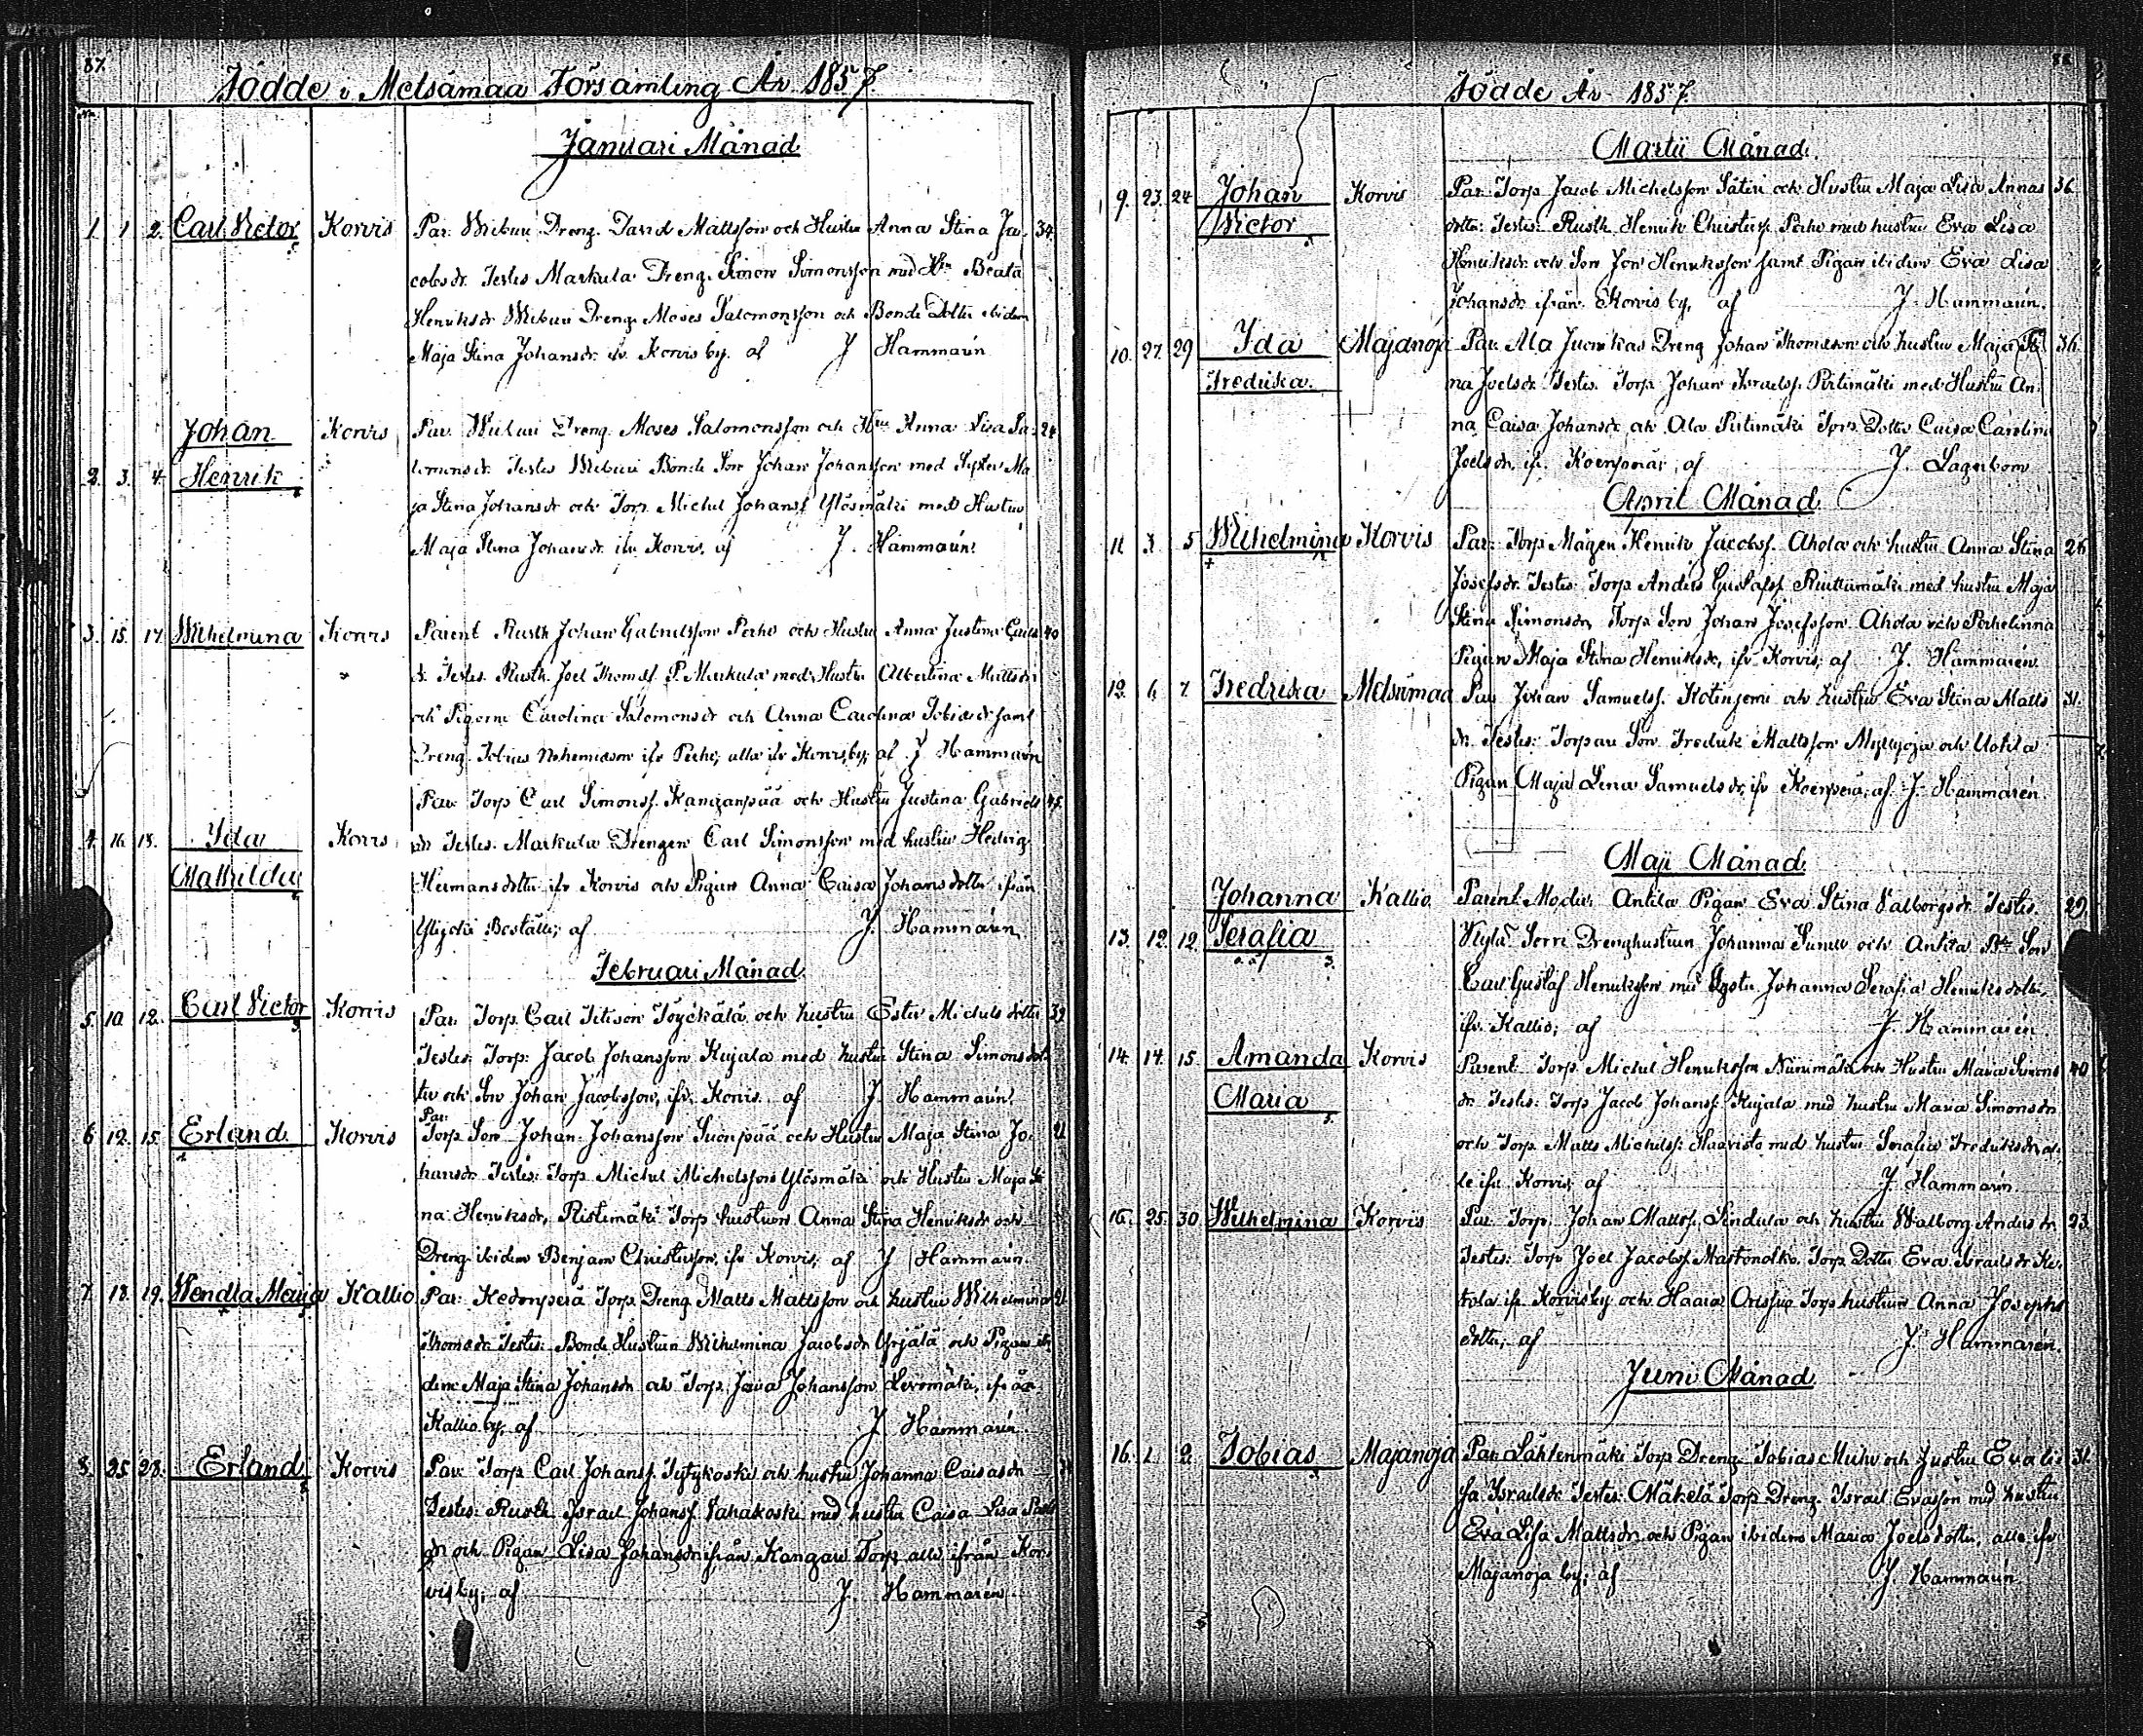 87.
Födde i Metsämaa Församling År 1857
Januari Månad
1. 1 2. Carl Victor Korvis Par. Dreng. David Mattsson och Hustru Anna Stina Ja- 34.
cobsdr. Testes Markula Dreng. Simon Simonsson med Hu Beata
Henriksdr Dreng. Moses Salomonsson och Bonde Dotter ibidem
Maja Stina Johansdr. ifr. Korvis by. af J Hammarén
Johan Korvis Par. Dreng. Moses Salomonsson och Hu Anna Lisa Sa- 24
2. 3. 4. Henrik lomonsdr. Testes Bonde Son Johan Johansson med Syster Ma
ja Stina Johansdr och Torp. Michel Johanss Ylösmäki med Hustru
Maja Stina Johansdr. ifr. Korvis, af J. Hammarén
3. 15. 17. Wilhelmina Korvis Parent Rusth Johan Gabrielsson Perho och Hustru Anna Justina Carls 40
dr. Testes. Rusth. Joel Thomass P. Markula med Hustru Albertina Mattsdr
och Pigorne Carolina Salomonsdr och Anna Carolina Tobiasdr samt
Dreng. Tobias Nehemiasson ifr Perho, alla ifr Korvis by, af J Hammarén
Par. Torp Carl Simonss. Kanganpää och Hustru Justina Gabriels 45.
4. 16. 18. Ida Korvis dr Testes. Markula Drengen Carl Simonsson med hustru Hedvig
Mathilda Hermansdotter ifr Korvis och Pigan Anna Caisa Johansdotter ifrån
Boställe; af J. Hammarén
Februari Månad
5. 10. 12. Carl Victor Korvis Par. Torp. Carl Töyckälä och hustru Ester Michelsdotter 39
Testes: Torp: Jacob Johansson Kujala med hustru Stina Simonsdot
ter och Son Johan Jacobsson, ifr. Korvis. af J. Hammarén
Par:
6 12. 15. Erland Korvis Torp Son Johan Johansson Suonpää och Hustru Maja Stina Jo- 21
hansdr. Testes: Torp Michel Michelsson Ylösmäki och Hustru Maja Sti
na Henriksdr, Ristimäki Torp hustrun Anna Stina Henriksdr och
Dreng ibidem Benjam Christersson, ifr Korvis; af J Hammarén.
7. 18. 19. Wendla Maria Kallio Par: Kedonperä Torp. Dreng Matts Mattsson och hustru Wilhelmina 21.
Thomasdr Testes: Bonde Hustrun Wilhelmina Jacobsdr Yrjälä och Pigan ibi
dem Maja Stina Johansdr och Torp. Johansson Levomäki, ifrån
Kallio by, af J. Hammarén
8. 25 28. Erland Korvis Par: Torp Carl Johanss. Tytykoski och hustru Johanna Caisasdr
Testes: Rusth Israel Johanss. Vahakoski med hustru Caisa Lisa
dr och Pigan Lisa Johansdr ifrån Kangan Torp alla ifrån Kor-
vis by; af J. Hammarén
88
Födde År 1857.
Martii Månad.
9. 23. 24 Johan Korvis Par. Torp Jacob Michelsson Säteri och Hustru Maja Lisa Annas 36
Victor dotter: Testes: Rusth. Henrik Christerss. Perho med hustru Eva Lisa
Henriksdr och Son Jon Henriksson samt Pigan ibidem Eva Lisa
Johansdr ifrån Korvis by, af J. Hammarén.
10. 27. 29 Ida Majanoja Par. Ala Juonikas Dreng Johan Thomasson och hustru Maja Sti 36.
Fredrika na Joelsdr. Testes. Torp. Johan Israelss. Pirtimäki med Hustru An-
na Caisa Johansdr och Ala Pirtimäki Torp Dotter Caisa Carolina
Joelsdr, ifr. Koenperä; af J. Lagerbom
April Månad
11. 3. 5 Wilhelmina Korvis Par: Torp Mågen Henrik Jacobss. Ahola och hustru Anna Stina 26
Josefsdr. Testes: Torp Anders Gustafss Riuttamäki med hustru Maja
Stina Simonsdr, Torp. Son Johan Josefsson Ahola och
Pigan Maja Stina Henriksdr, ifr Korvis; af J. Hammarén
12. 6. 7. Fredrika Metsämaa Par Johan Samuelss. Kotinjemi och hustru Eva Stina Matts 31.
dr. Testes: Torpare Son Fredrik Mattsson Myllyoja och Uotila
Pigan Maja Lena Samuelsdr, ifr Koenperä; af J. Hammarén.
Maji Månad
Johanna Kallio Parent Moder: Antila Pigan Eva Stina Valborgsdr. Testes. 29.
13. 12. 12. Serafia Drenghustrun Johanna och Antila Son
Carl Gustaf Henriksson med Syster Johanna Serafia Henriksdotter,
ifr. Kallio; af J. Hammarén
14. 14. 15. Amanda Korvis Parent Torp. Michel Henriksson Niinimäki och Hustru Maria Simons 40
Maria dr. Testes: Torp Jacob Johanss. Kujala med hustru Maria Simonsdr
och Torp Matts Michelss. Haavisto med hustru Serafia Fredriksdr, al-
le ifr Korvis; af J. Hammarén
15. 25. 30 Wilhelmina Korvis Par. Torp. Johan Mattss. Lindula och hustru Walborg Andersdr 23.
Testes: Torp Joel Jacobss. Mastonolko, Torp Dotter Eva Israelsdr Ke-
tola ifr Korvis by och Haara Torp hustrun Anna Josephs
dotter; af J. Hammarén.
Juni Månad
16. 1. 2. Tobias Majanoja Par. Lähtenmäki Torp Dreng Tobias och Hustru Eva Li- 31.
sa Israelsdr Testes: Mäkelä Torp Dreng. Israel Evasson med hustru
Eva Lisa Mattsdr och Pigan ibidem Maria Joelsdotter, alla ifr
Majanoja by; af J. Hammarén